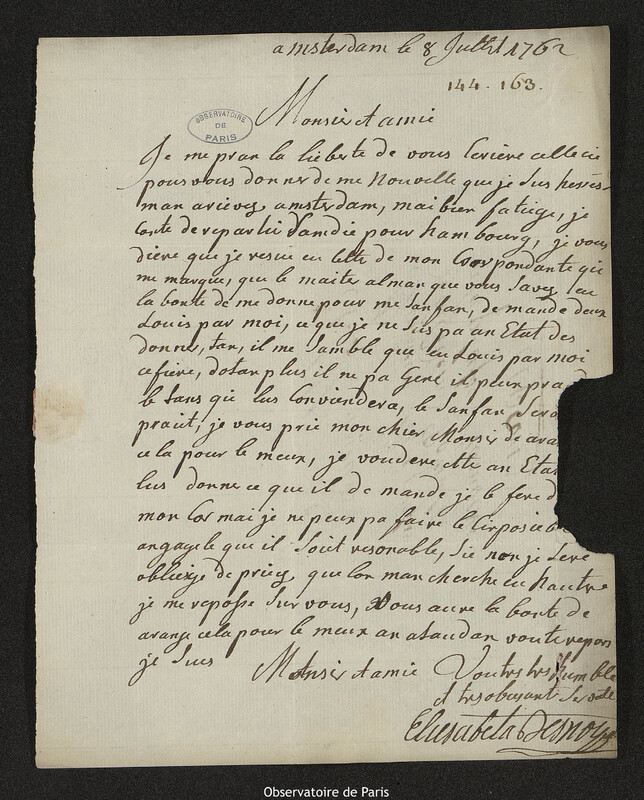 amsterdam le 8 Jullet 1762
144. 163.
OBSERVATOIRE
DE
PARIS
Monsier et amie
Je me pran la lieberte de vous Ecrière celle cie
pour vous donner de me Nouvelle que je sus
man arievez amsterdam, mai bien fatiige, je
conte de repartir Samdie pour hambourg, je vous
dière que je resue eu lettre de mon Corspondante qui
me marque, que le maiter alman que vous savez eu
la bonte de me donne pour me sanfan, de mande deux
Louis par moi, ce que je ne sus pa an Etat des
donne, tan, il me samble que eu Louis par moi
plus il ne pa Gene il peux
le tans qie lus Conviendera, le sanfan
je vous prie mon chier Monsier de
cela pour le meux, je voudere ette an Etat
lus donne ce que il de mande je le fere
mon Cor mai je ne peux pa faire le
angage le qui il soiet resonable, sie non je sere
oblieige de priez que lon man cherche eu hautre
je me reposse sur vous, vous aure la bonte de
arange cela pour le meux an atandan voutre repons
je sues Monsier et amie Voutre tres humble
et tres obeisante
Eliesabeta Desnoy
Observatoire de Paris